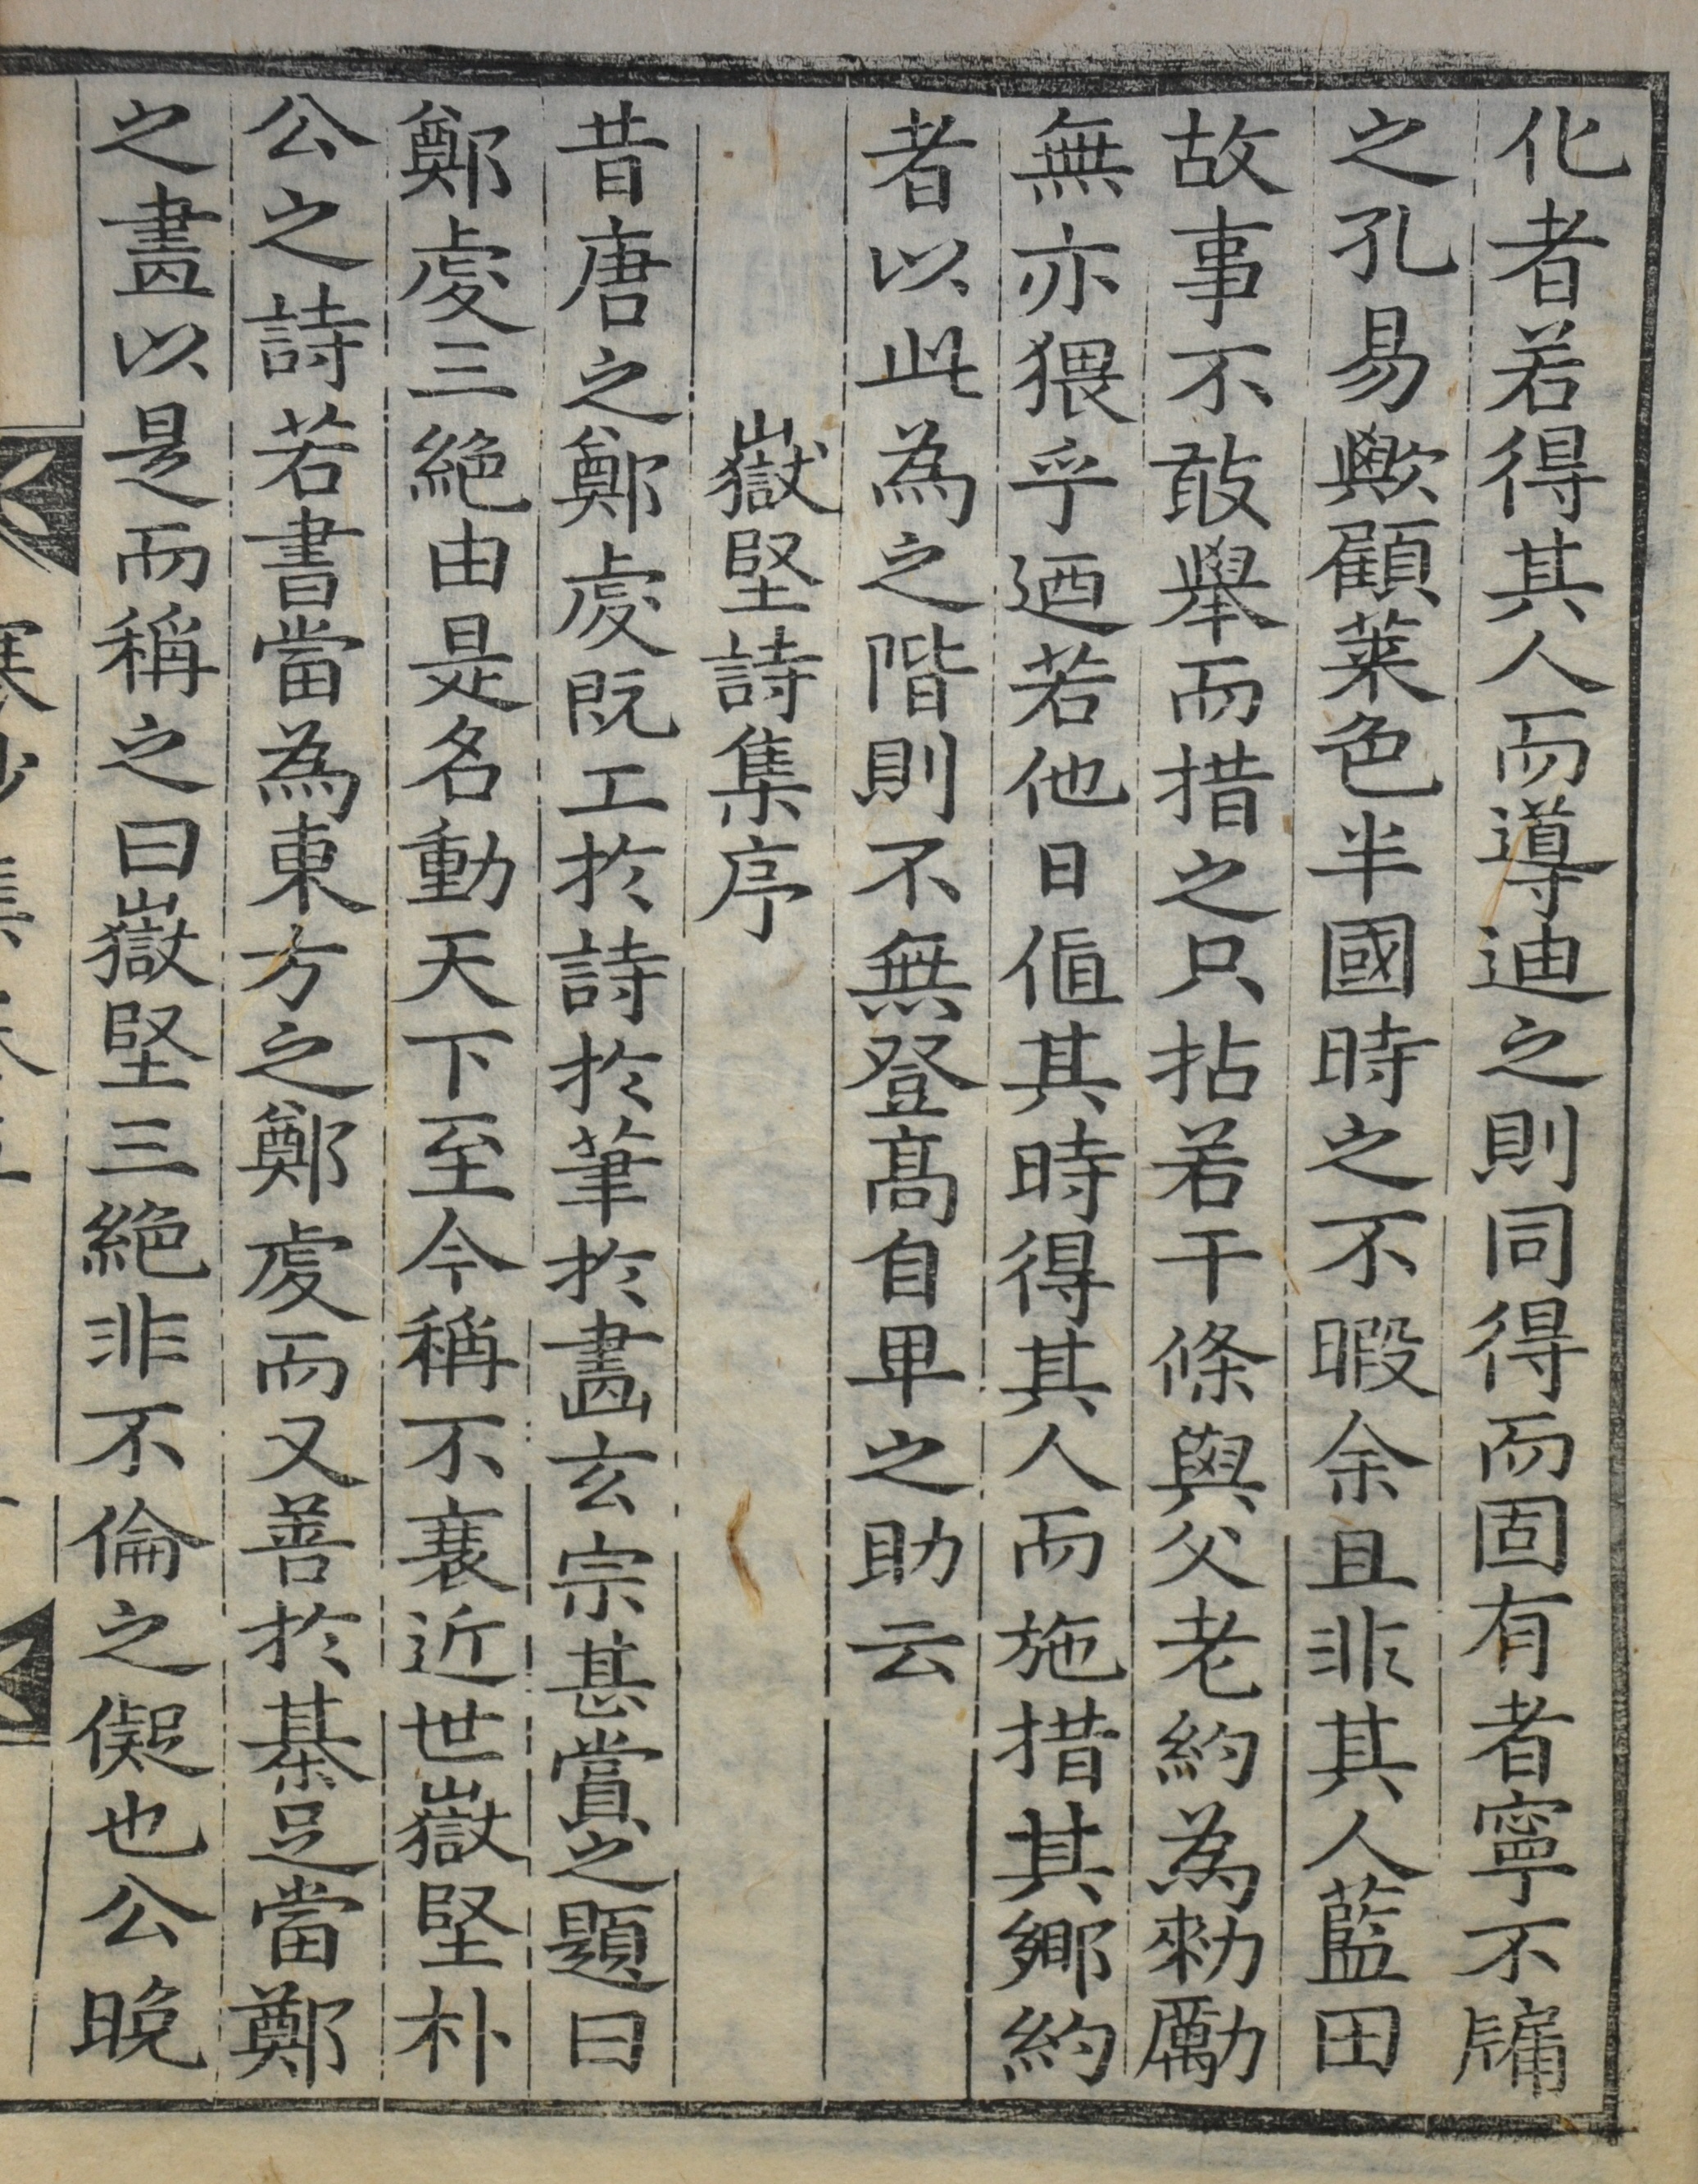 化者若得其人而導迪之則同得而固有者寧不牖
之孔易歟顧菜色半國時之不暇余且非其人藍田
故事不敢擧而措之只拈若干條與父老約為勑勵
無亦猥乎迺若他日値其時得其人而施措其鄕約
者以此為之階則不無登髙自卑之助云
嶽堅詩集序
昔唐之鄭虔既工於詩於筆於畵玄宗甚賞之題曰
鄭虔三絶由是名動天下至今稱不衰近世嶽堅朴
公之詩若書當為東方之鄭虔而又善於棊足當鄭
之畵以是而稱之曰嶽堅三絶非不倫之儗也公晩
集